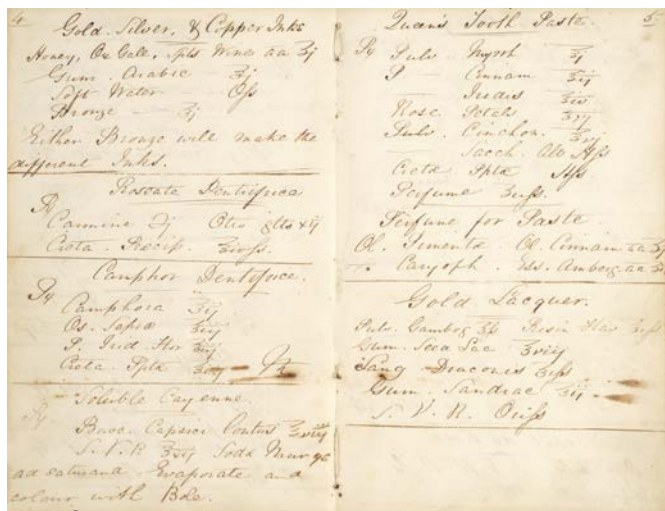 4
Gold, Silver, & Copper Inks
Honey, Ox Gall, Spts Wine aa ʒj
Gum Arabic ʒj
Soft Water Oſs
Bronze ʒj
Either Bronze will make the
different Inks.
Roseate Dentifrice
Carmine ℈j Otto gtts
Creta Precip.
Camphor Dentifrice.
Camphora ʒij
Os. Sepia ʒiij
P. Irid Flor
Creta Ppta
Soluble Cayenne
Bacc. Capsici Contus
S.V.R Soda Mur qs
ad saturand Evaporate and
colour with Bole.
5
Queen's Tooth Paste.
Pulv Myrrh ʒj
P Cinnam ʒij
Iridis
Rose Petals
Pulv. Cinchon.
Sacch. Alb
Creta Ppta
Perfume
Perfume for Paste.
Ol. Pimenta Ol. Cinnam aa
Caryoph. Ess. Amberg. aa
Gold Lacquer.
Pulv. Gambog Resin Flav
Gum. Seed Lac ʒviij
Sang Draconis
Gum. Sandrac
S. V. R.